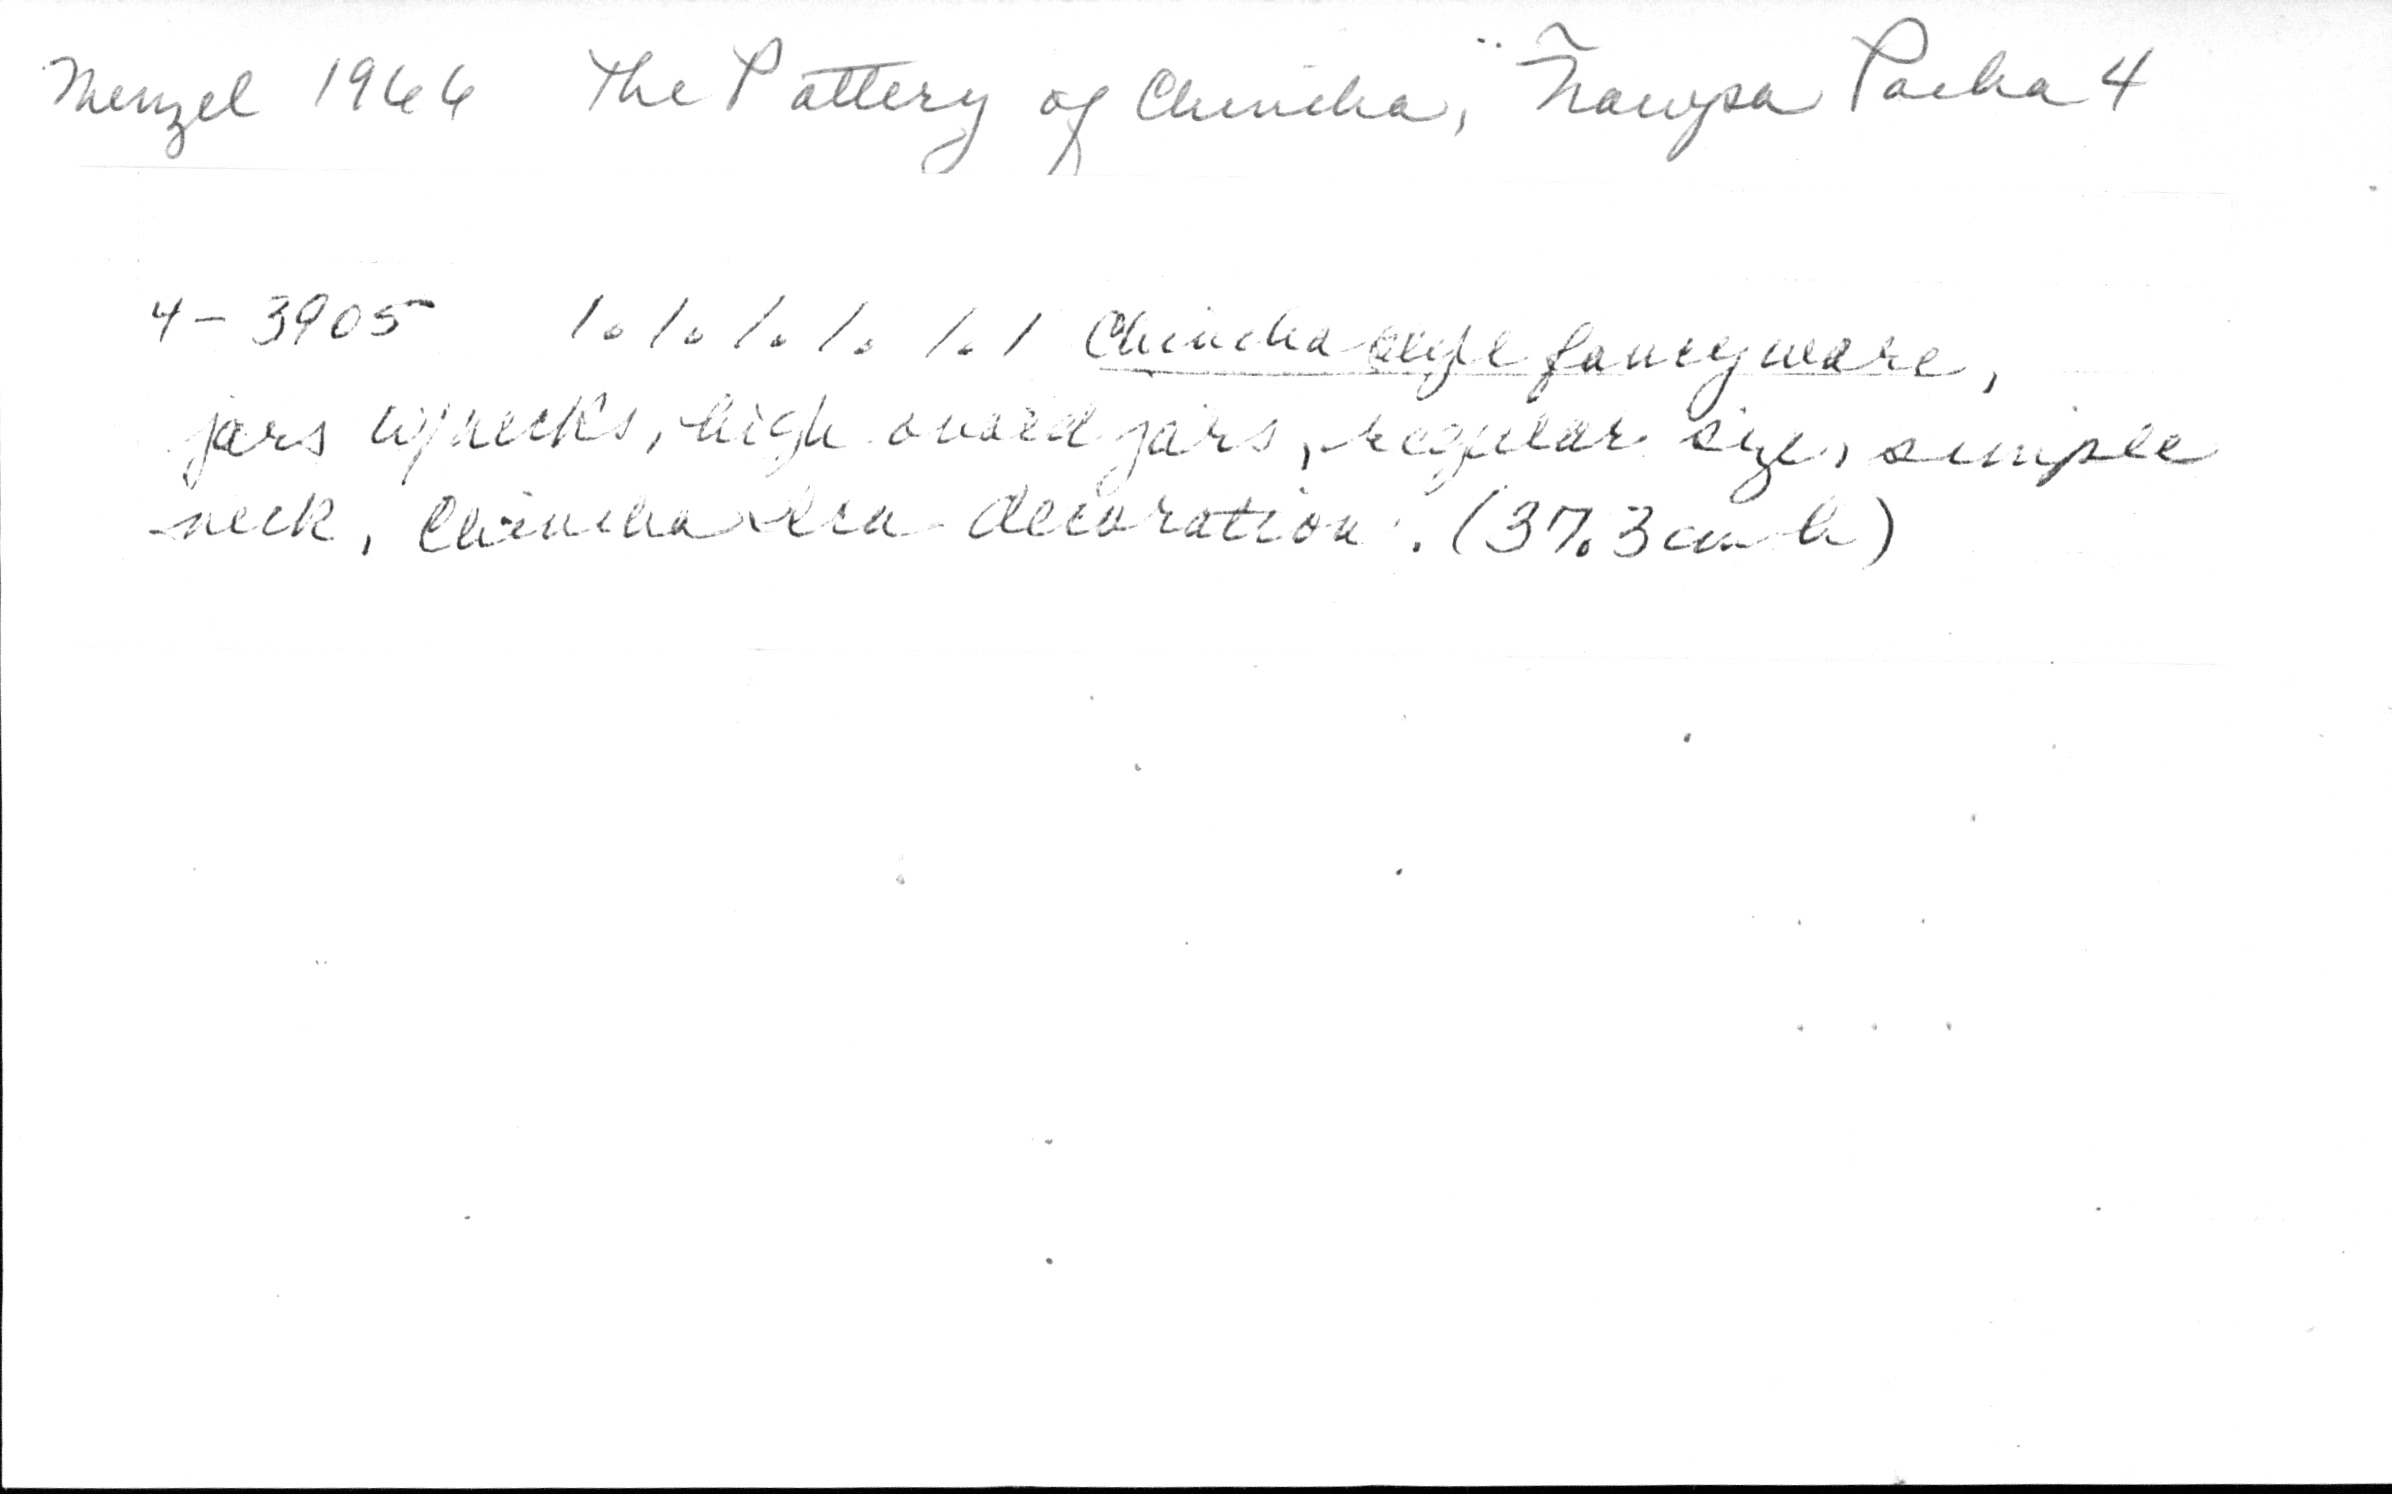 Menzel 1966 The Pottery of Chincha, Ñawpa Pacha 4
4-3905 1.1.1.1.1.1 Chincha type fancy ware,
jars w/necks, high ovoid jars, regular size, simple
neck, Chincha era decoration. (37.3 cm h)